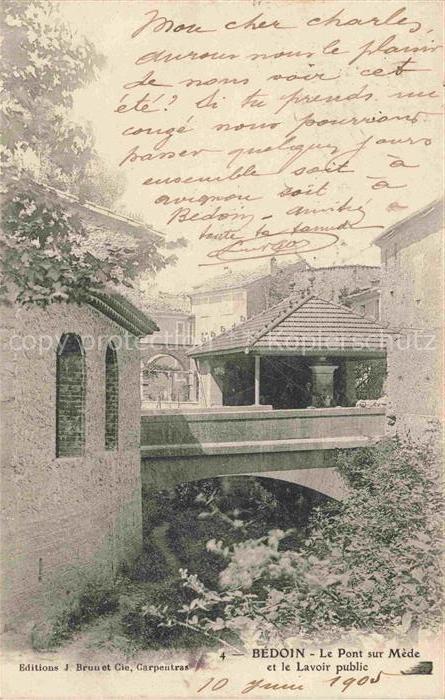 Mon cher Charles,
aurons nous le plaisir
de nous voir cet
été? Si tu prends un
congé nous pourrions
passer quelques jours
ensemble soit à
avignon soit à
Bédoin - amitié
toute la famille
copyright
4 - BÉDOIN - Le Pont sur Mède
et le Lavoir public
Editions J. Brun et Cie, Carpentras
10 Juin 1905